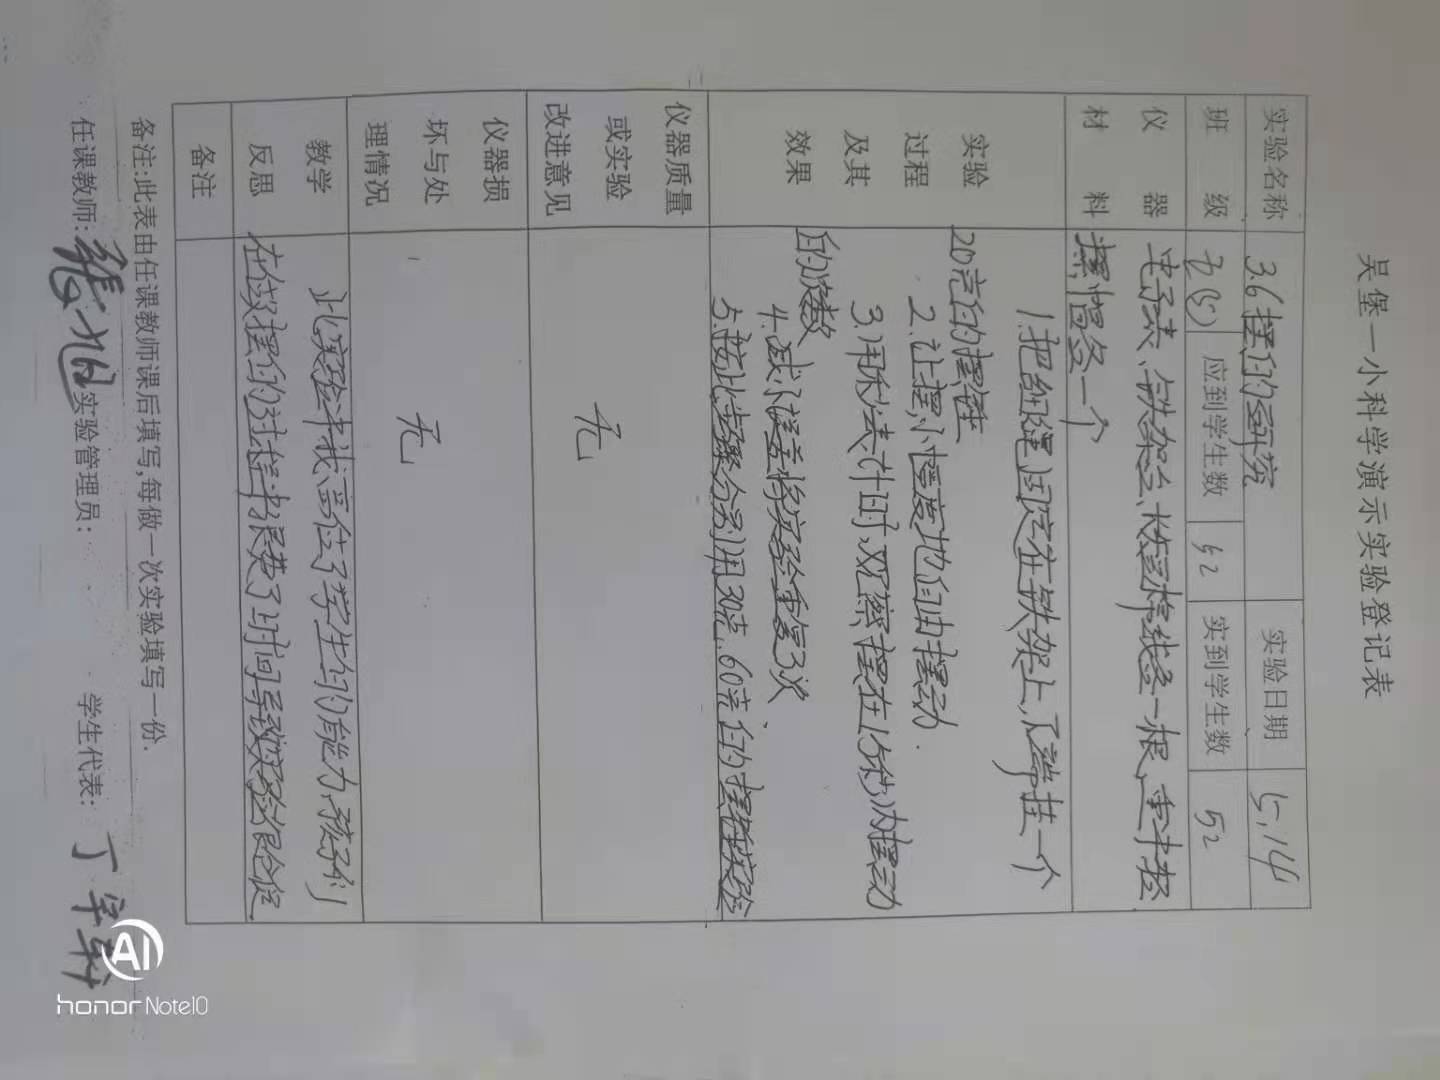 吴堡一小科学演示实验登记表
实验名称 3.6摆的研究 实验日期 5.14
班级 五(5) 应到学生数 52 实到学生数 52
仪器 电子表、铁架台、长绳棉线各一根、重中轻
材料 摆锤各一个
1.把细绳固定在铁架上,下端挂一个
实验 20克的摆锤
过程 2.让摆小幅度地自由摆动.
及其 3.用秒表计时,观察摆在15秒内摆动
效果 的次数
4.减小误差将实验重复3次
5.按此步骤分别用30克、60克的摆锤实验
仪器质量
或实验 无
改进意见
仪器损
坏与处 无
理情况
教学 此实验中我高估了学生们的能力,孩子们
反思 在做摆的过程中浪费了时间导致实验很仓促
备注
备注:此表由任课教师课后填写,每做一次实验填写一份.
任课教师: 实验管理员: 学生代表: 丁
AI
honor Note10